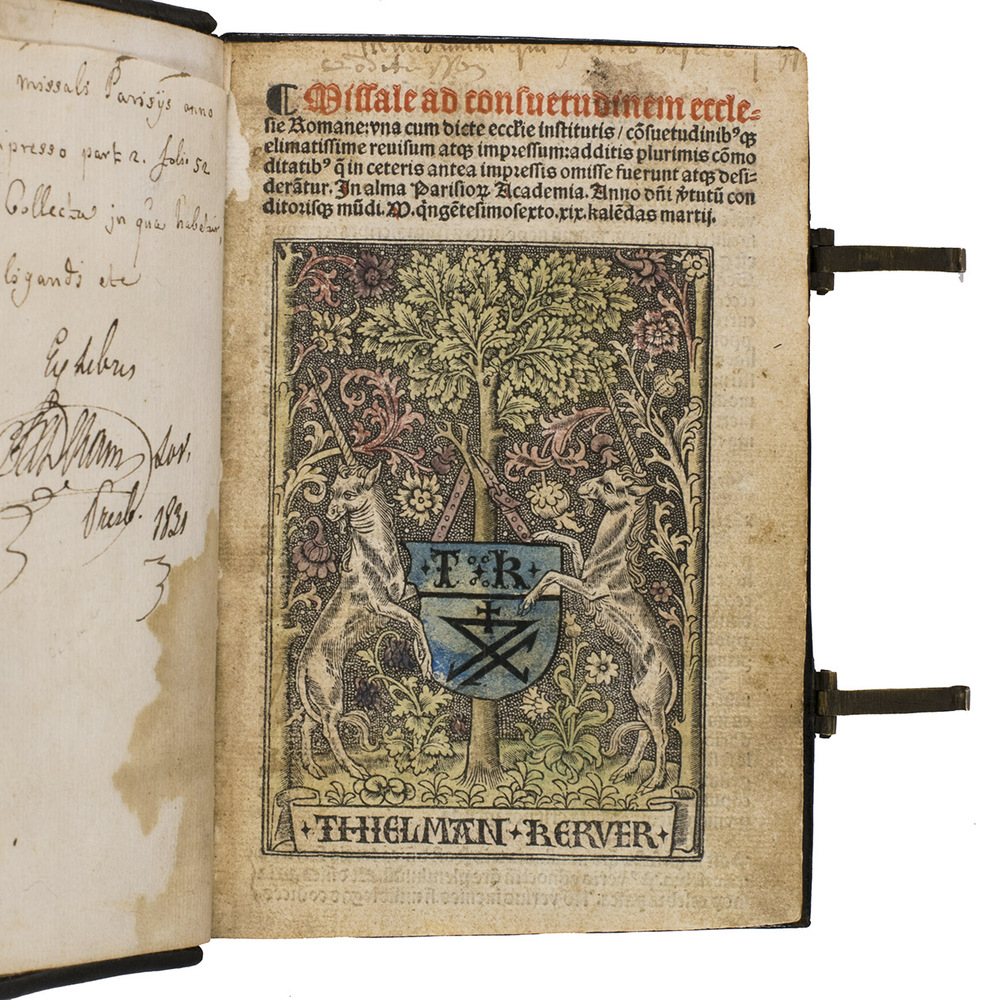 missals Parisijs anno
presso part 2. folio 52
Collecta in qua habetur,
ligandi etc
Ex Libris
Lov.
Presb. 1831
qui
1763
¶ Missale ad consuetudinem eccle-
sie Romane: vna cum dicte ecclẽie institutis / cõsuetudinibꝰ qꝫ
elimatissime reuisum atqꝫ impressum: additis plurimis cõmo
ditatibꝰ q̃ in ceteris antea impressis omisse fuerunt atqꝫ desi-
derãtur. In alma Parisioꝝ Academia. Anno dñi v̾tutũ con
ditorisqꝫ mũdi. M. qñgẽtesimosexto. xix. kalẽdas martij.
T R
THIELMAN KERVER